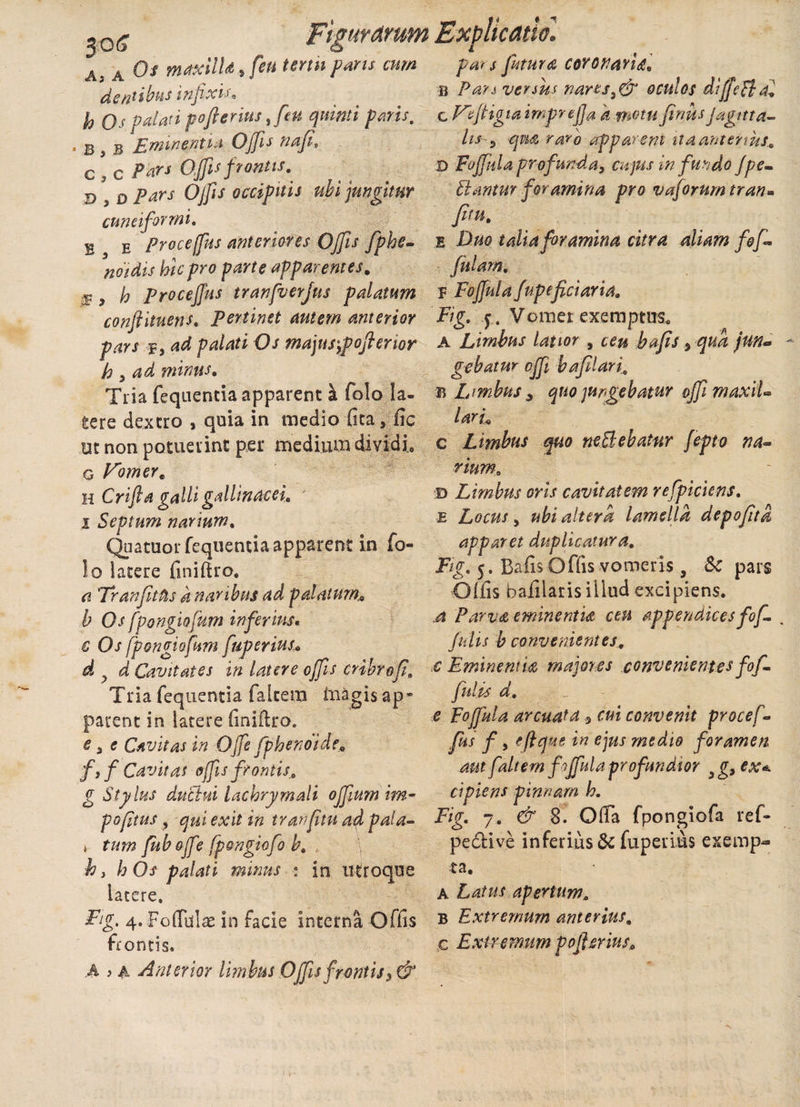 306
Figurarum Explicatio.
A, A Os maxillæ, ſeu tertii paris cum
dentibus infixis.
h Os palati poſterius, ſeu quinti paris.
B, B Eminentia Oſſis naſi.
C, C Pars Oſſis frontis.
D, D Pars Oſſis occipitis ubi jungitur
cuneiformi.
E, E Proceſſus anteriores Oſſis ſphe-
noïdis hic pro parte apparentes.
F, h Proceſſus tranſverſus palatum
conſtituens. Pertinet autem anterior
pars F, ad palati Os majus; poſterior
h, ad minus.
Tria ſequentia apparent à ſolo la-
tere dextro, quia in medio ſita, ſic
ut non potuerint per medium dividi.
G Vomer.
H Criſta galli gallinacei.
I Septum narium.
Quatuor ſequentia apparent in ſo-
lo latere ſiniſtro.
a Tranſitûs à naribus ad palatum.
b Os ſpongioſum inferius.
c Os ſpongioſum ſuperius.
d, d Cavitates in latere oſſis cribroſi.
Tria ſequentia ſaltem magis ap-
parent in latere ſiniſtro.
e, e Cavitas in Oſſe ſphenoïde.
f, f Cavitas oſſis frontis.
g Stylus ductui lachrymali oſſium im-
poſitus, qui exit in tranſitu ad pala-
tum ſub oſſe ſpongioſo b.
h, h Os palati minus: in utroque
latere.
Fig. 4. Foſſulæ in facie internâ Oſſis
frontis.
A, A Anterior limbus Oſſis frontis, &
pars ſuturæ coronariæ.
B Pars verſus nares, & oculos diſſectâ.
C Veſtigia impreſſa à motu ſinûs ſagitta-
lis, quæ raro apparent ita anteriùs.
D Foſſula profunda, cujus in fundo ſpe-
ctantur foramina pro vaſorum tran-
ſitu.
E Duo talia foramina citra aliam foſ-
ſulam.
F Foſſula ſupeficiaria.
Fig. 5. Vomer exemptus.
A Limbus latior, ceu baſis, quâ jun-
gebatur oſſi baſilari.
B Limbus, quo jungebatur oſſi maxil-
lari.
C Limbus quo nectebatur ſepto na-
rium.
D Limbus oris cavitatem reſpiciens.
E Locus, ubi alterâ lamellâ depoſitâ
apparet duplicatura.
Fig. 5. Baſis Oſſis vomeris, & pars
Oſſis baſilaris illud excipiens.
a Parvæ eminentiæ ceu appendices foſ-
ſulis b convenientes.
c Eminentiæ majores convenientes foſ-
ſulis d.
e Foſſula arcuata, cui convenit proceſ-
ſus f, eſtque in ejus medio foramen
aut ſaltem foſſula profundior, g, ex-
cipiens pinnam h.
Fig. 7. & 8. Oſſa ſpongioſa reſ-
pectivè inferiùs & ſuperiùs exemp-
ta.
A Latus apertum.
B Extremum anterius.
C Extremum poſterius.